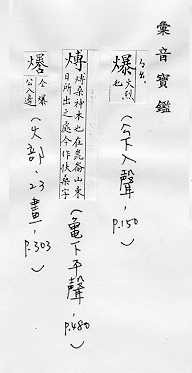 彙音寶鑑
爆
火烈
也
(公下入聲,p.150)
煿
煿桑神木也在崑崙山東
日所出之處今作扶桑字
(龜下平聲,p.480)
仝爆
公入邊
(火部,23畫,p.303)